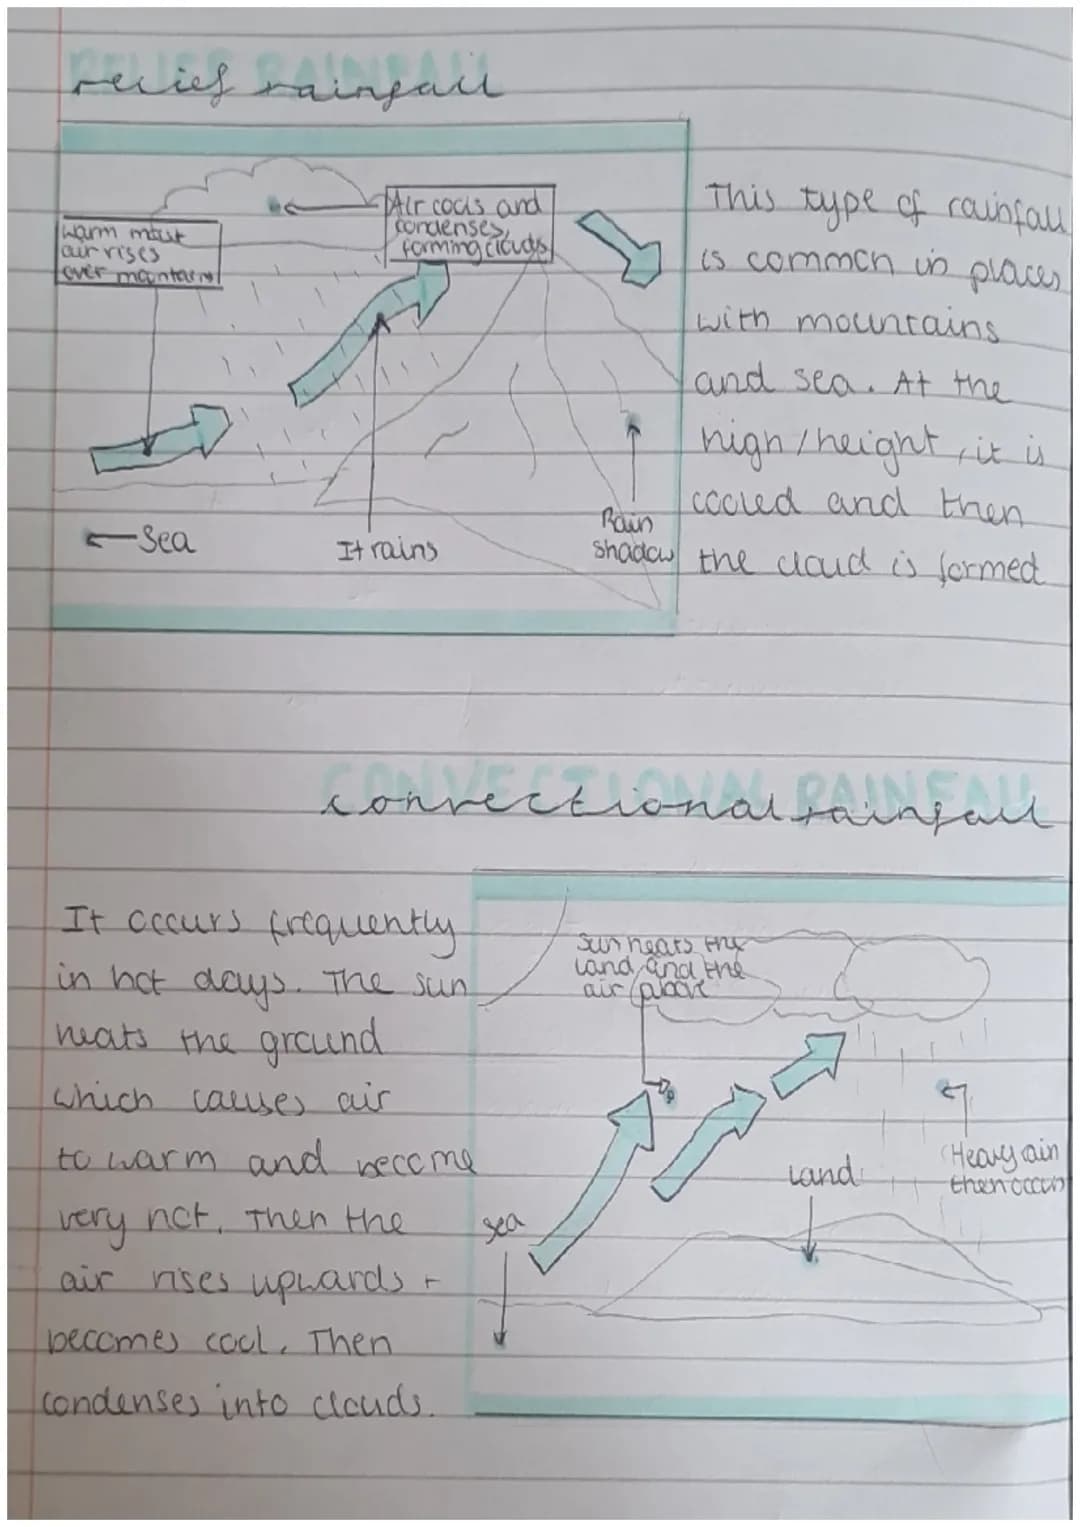 RELIEF RAINFALL
relief rainfall
warm moist
air rises
over mountains
Air cools and
condenses,
forming clouds
← Sea
It rains
Rain
shadow
This type of rainfall
is common in places
with mountains
and sea. At the
high/height, it is
cooled and then
the cloud is formed
CONVECTIONAL RAINFALL
convectional rainfall
It occurs frequently
in hot days. The sun
heats the ground
which causes air
to warm and become
very hot. Then the
air rises upwards +
becomes cool. Then
condenses into clouds.
Sun heats the
land and the
air above
sea
Land
Heavy ain
then occurs